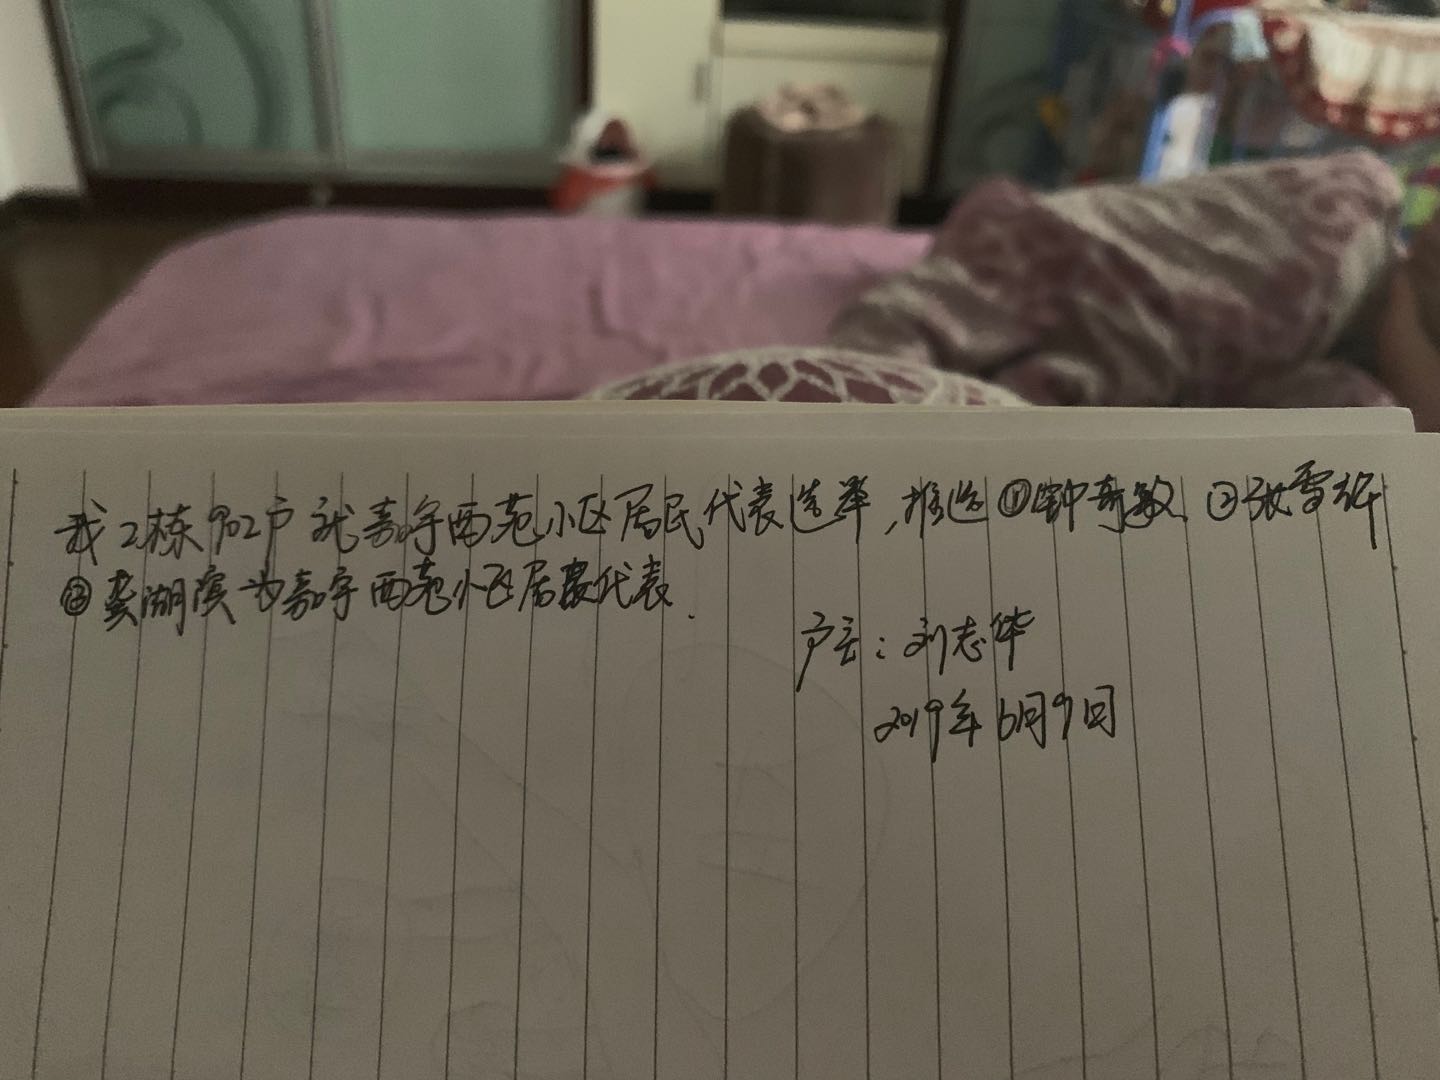 我2栋902户就嘉宇西苑小区居民代表选举,推选①钟奇敏、②张雪
③龚湖滨为嘉宇西苑小区居民代表.
户主:刘志华
2019年6月9日